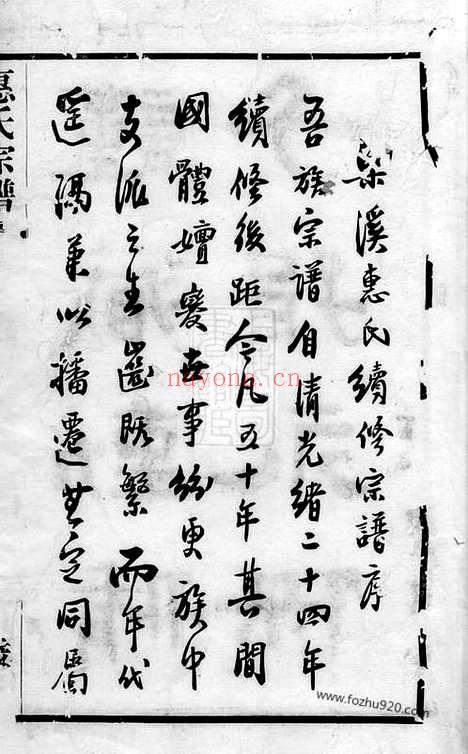 梁溪惠氏續修宗譜序
吾族宗譜自清光緒二十四年
續修後距今凡五十年其間
國體嬗變世事紛更族中
支派之生齒既繁而年代
遥隔兼以播遷無定同居
惠氏宗譜
nayona.cn
www.fozhu920.com